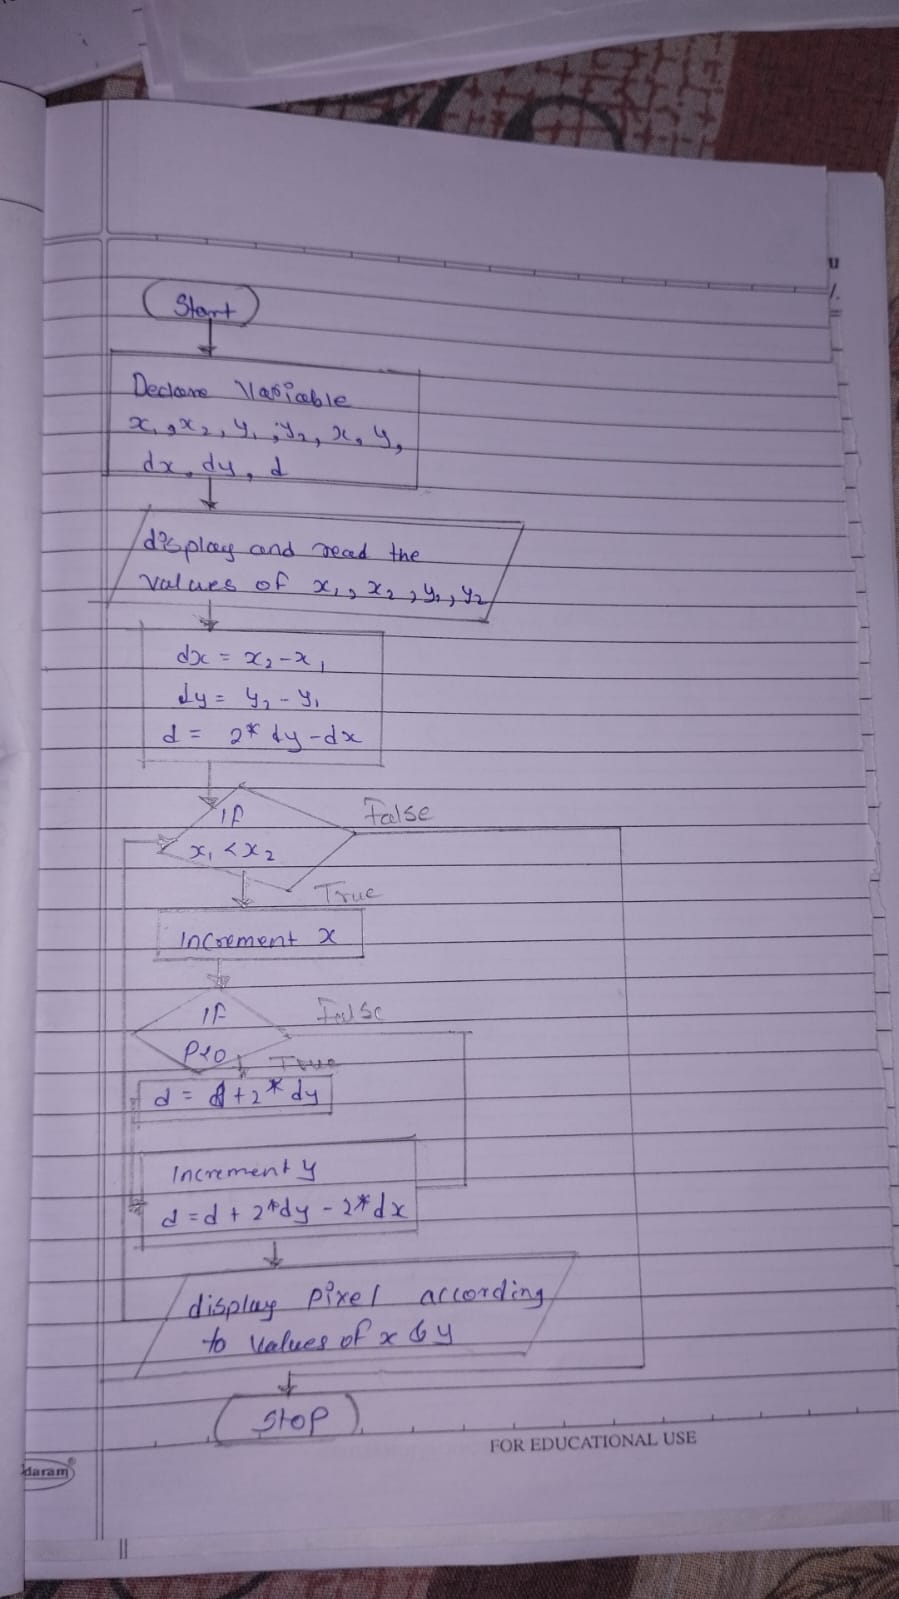 Start
Declare Variable
x₁, x₂, y₁, y₂, x, y,
dx, dy, d
display and read the
values of x₁, x₂, y₁, y₂
dx = x₂-x₁
dy = y₂-y₁
d = 2* dy-dx
If
False
x₁ <x₂
True
Increment x
If
False
P<0
True
d = d+2* dy
Increment y
d=d + 2*dy - 2*dx
display pixel according
to values of x & y
Stop
FOR EDUCATIONAL USE
daram